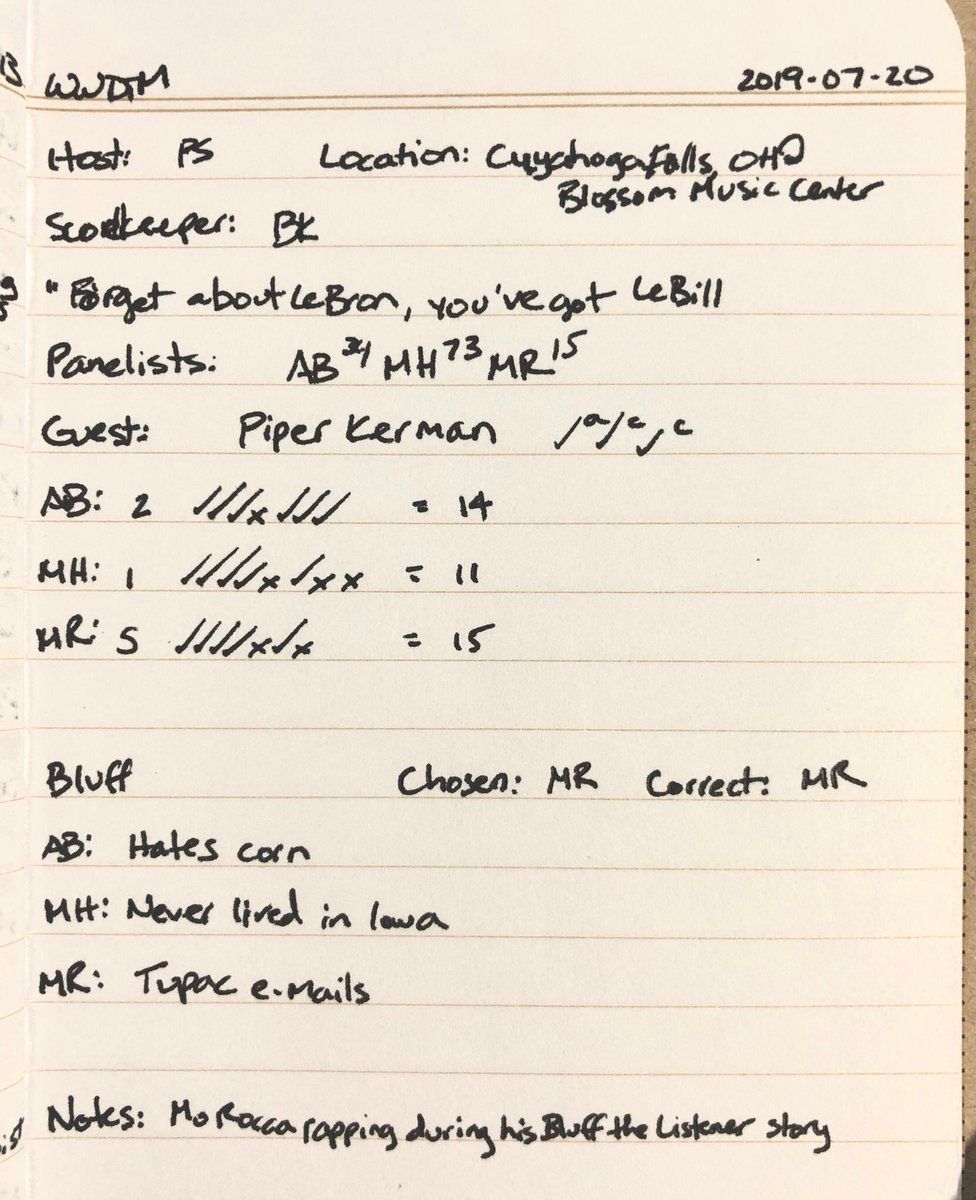 WWDTM 2019-07-20
Host: PS Location: Cuyahoga Falls, OH
Blossom Music Center
Scorekeeper: BK
"Forget about LeBron, you've got LeBill
Panelists: AB 34 MH 73 MR 15
Guest: Piper Kerman ✓a ✓c ✓c
AB: 2 ✓✓✓x✓✓✓ = 14
MH: 1 ✓✓✓✓x✓xx = 11
MR: 5 ✓✓✓✓x✓x = 15
Bluff Chosen: MR Correct: MR
AB: Hates corn
MH: Never lived in Iowa
MR: Tupac e-mails
Notes: Mo Rocca rapping during his Bluff the Listener story